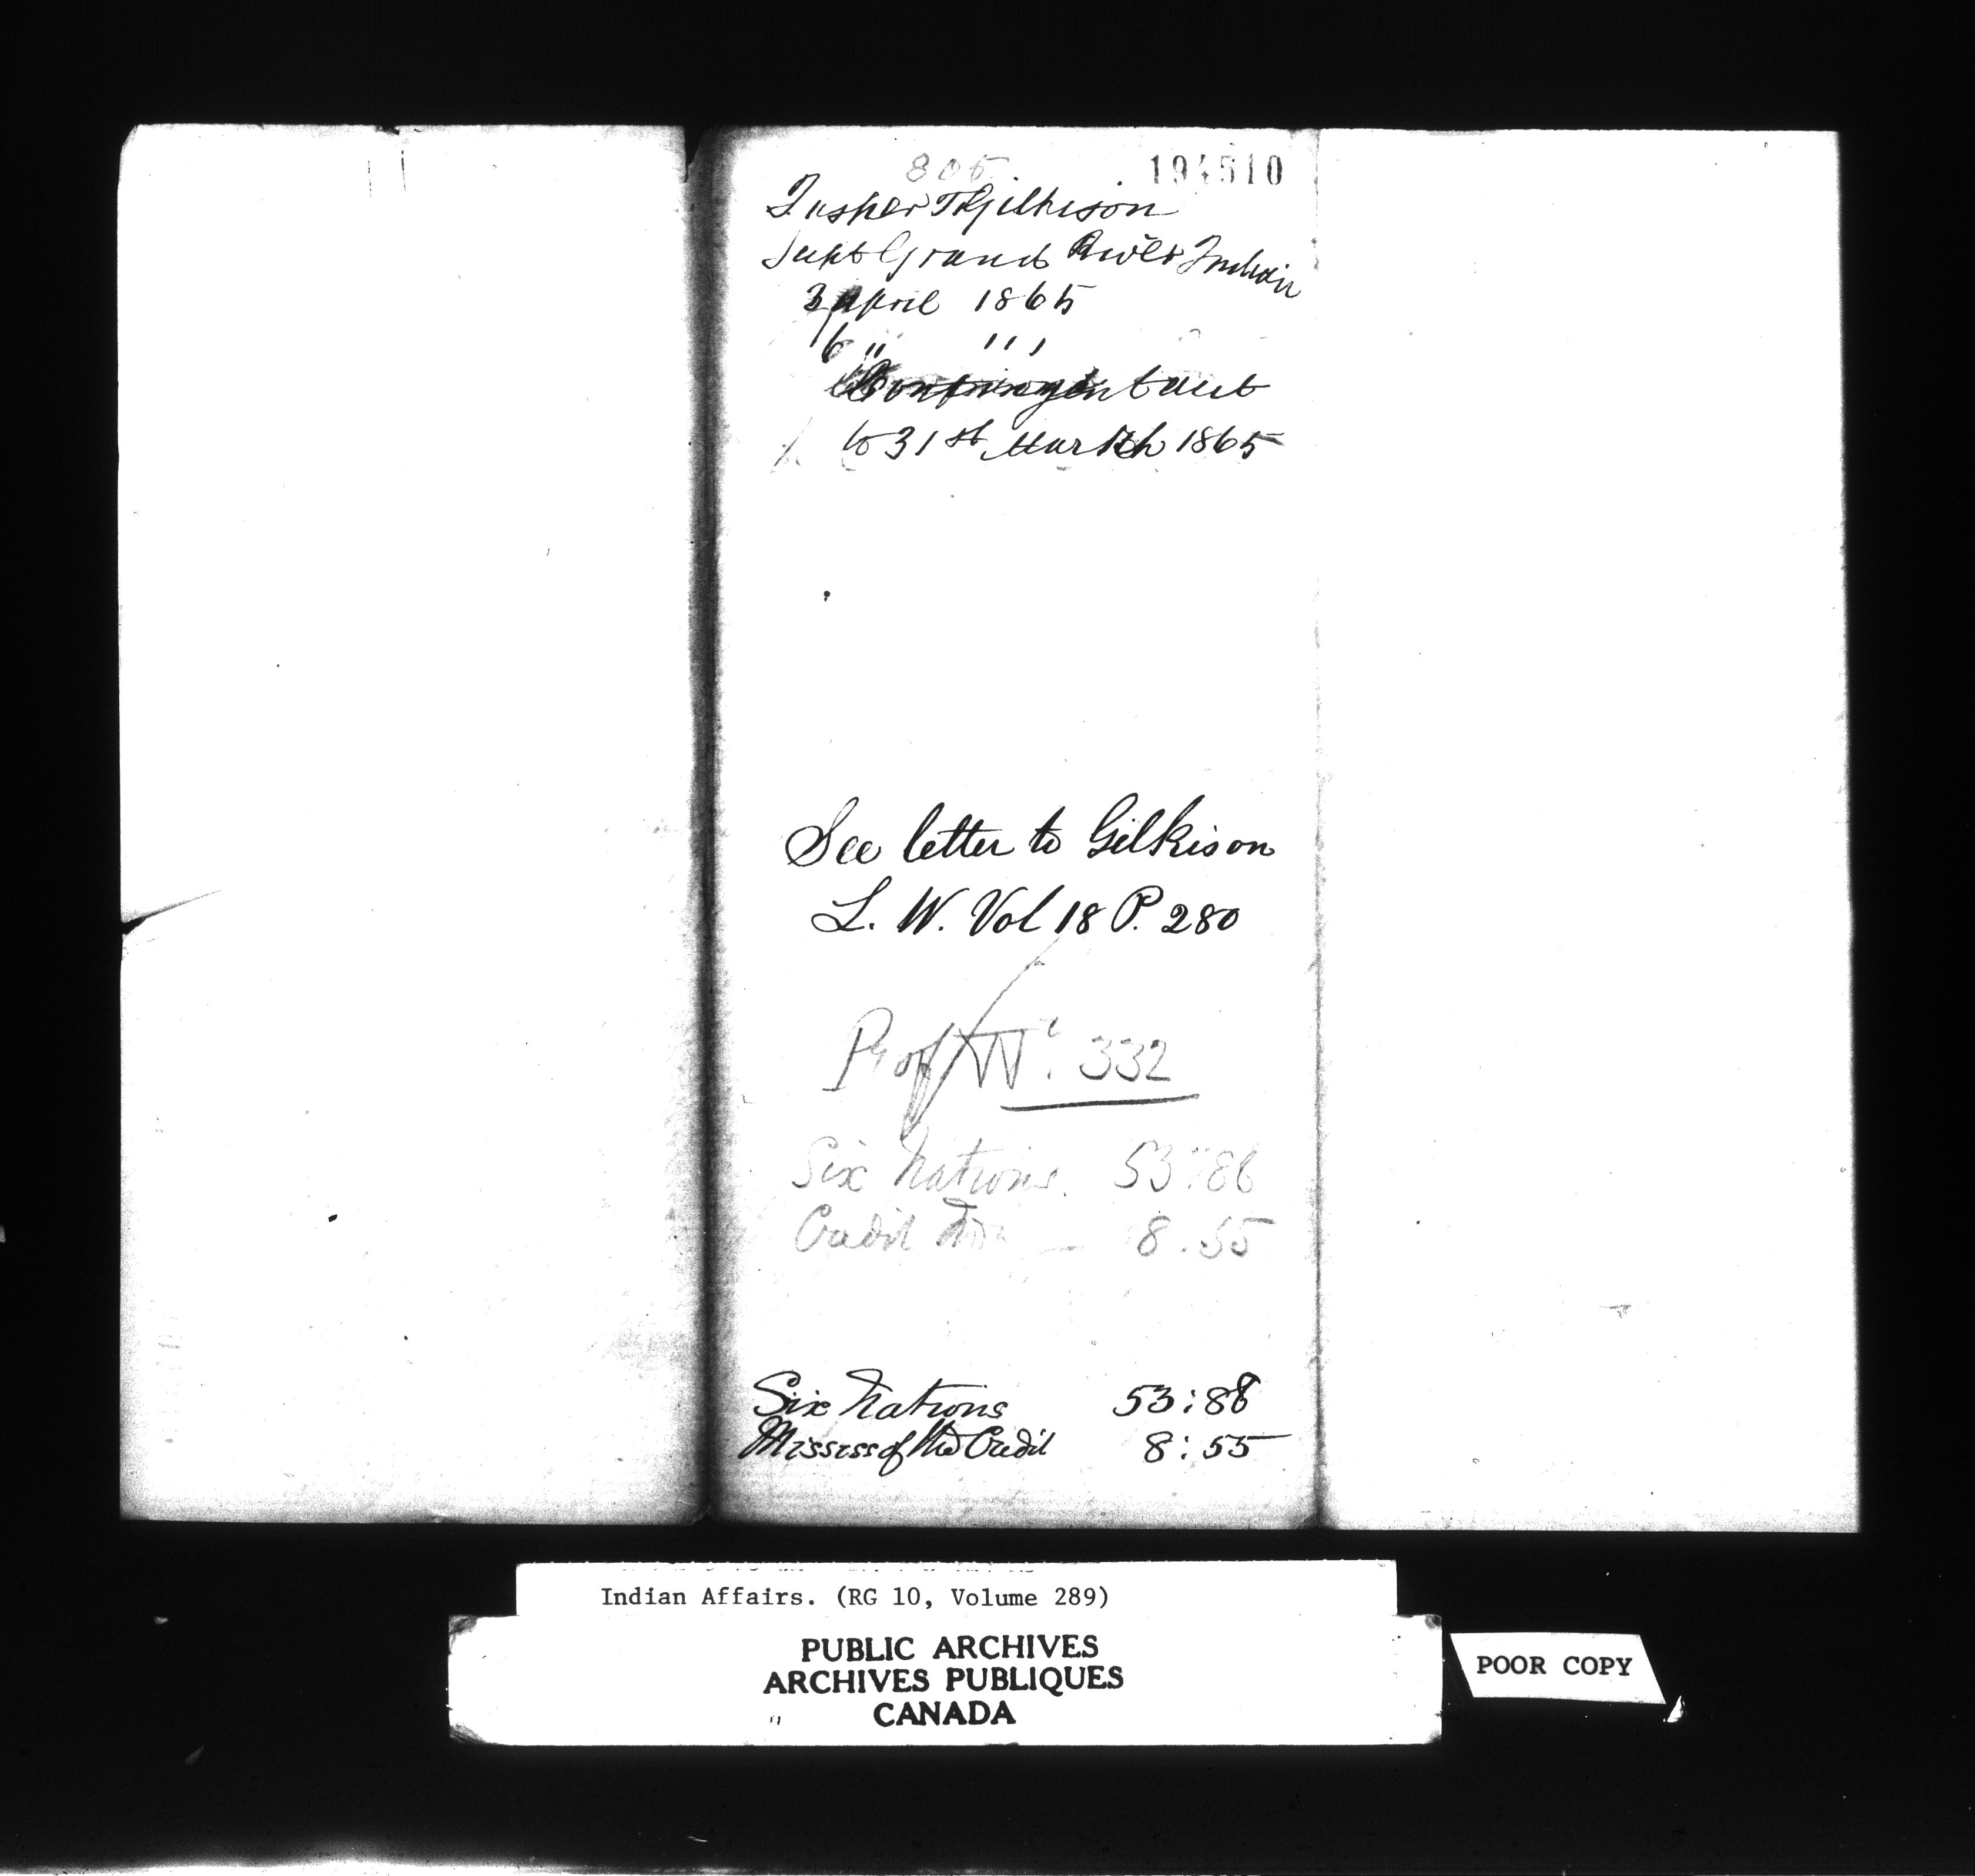 805. 194510
Jasper T Gilkison
Supt Grand River Indian
3 April 1865
6 " " ,
Contingent acct
to 31st March 1865
See letter to Gilkison
L. W. Vol 18 P. 280
No. 332
Six Nations. 53:86
Credit 8.55
Six Nations 53:88
Mississ of the Credit 8:55
Indian Affairs. (RG 10, Volume 289)
PUBLIC ARCHIVES
ARCHIVES PUBLIQUES
CANADA
POOR COPY